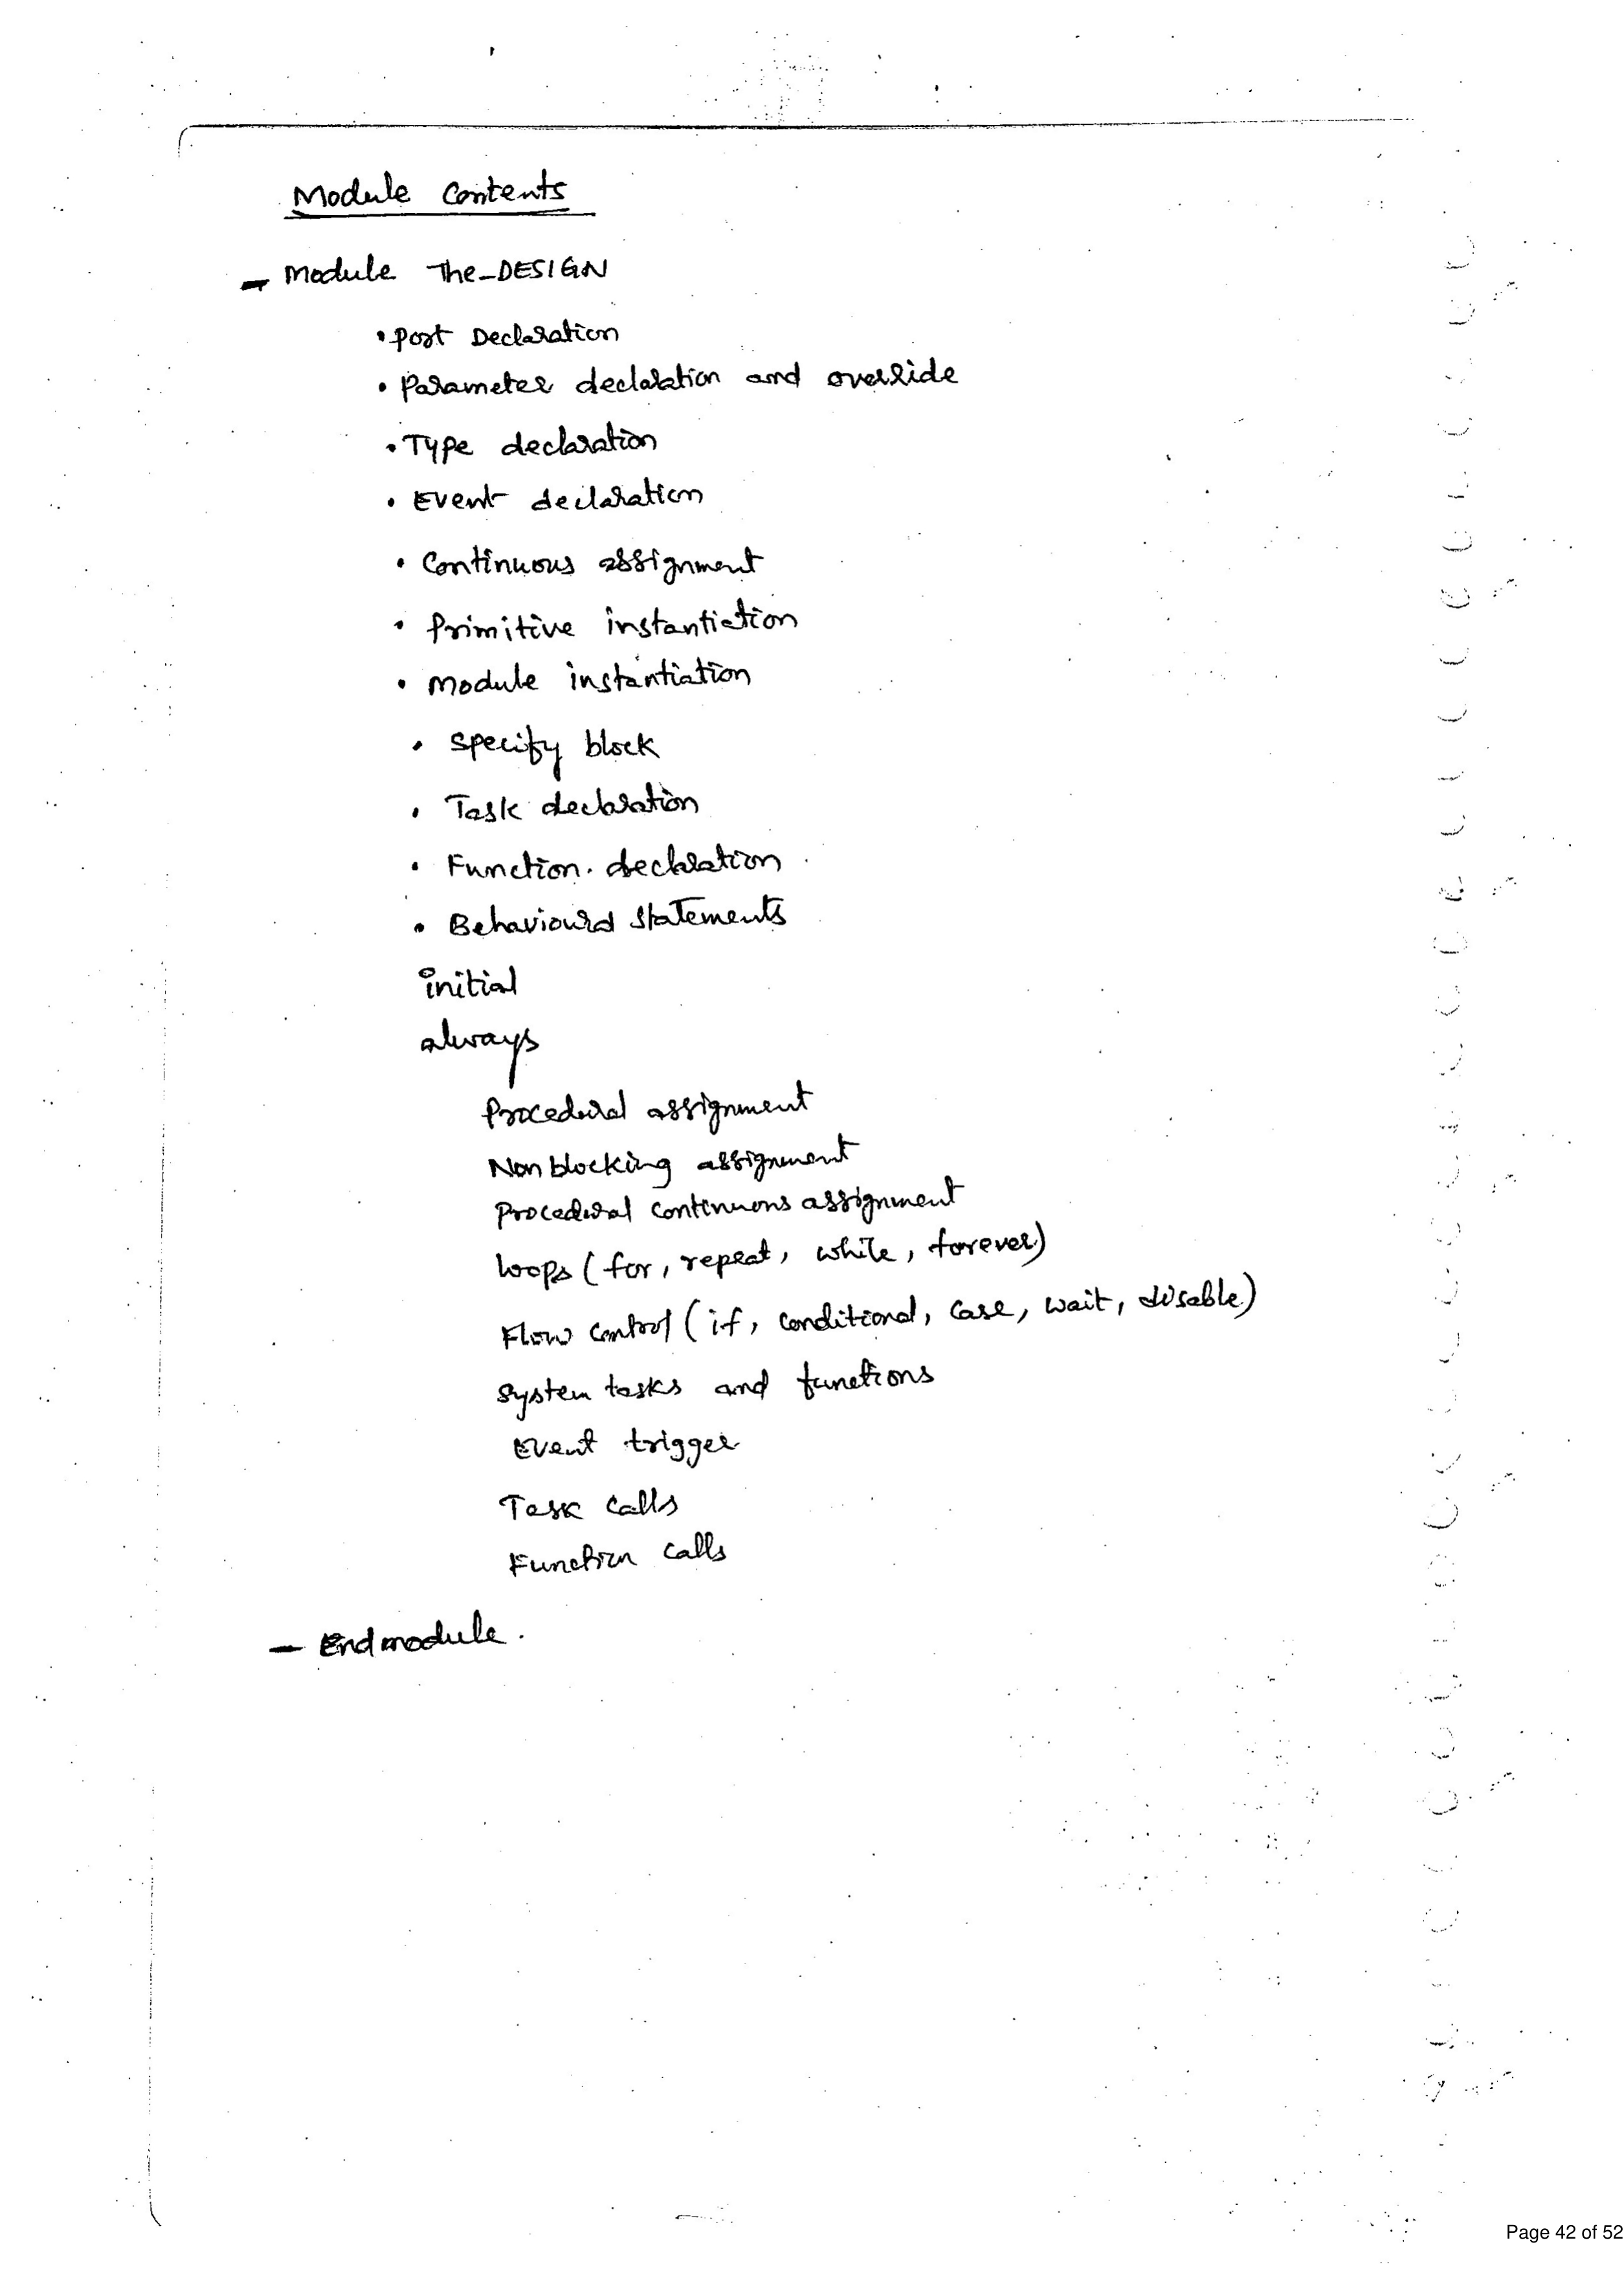 Module Contents
- Module The_DESIGN
• Port Declaration
• Parameter declaration and override
• Type declaration
• Event declaration
• Continuous assignment
• Primitive instantiation
• Module instantiation
• specify block
• Task declaration
• Function. declaration
• Behavioural statements
initial
always
Procedural assignment
Non blocking assignment
Procedural continuous assignment
loops (for, repeat, while, forever)
Flow control (if, conditional, case, wait, disable)
System tasks and functions
Event trigger
Task calls
Function calls
- End module.
Page 42 of 52